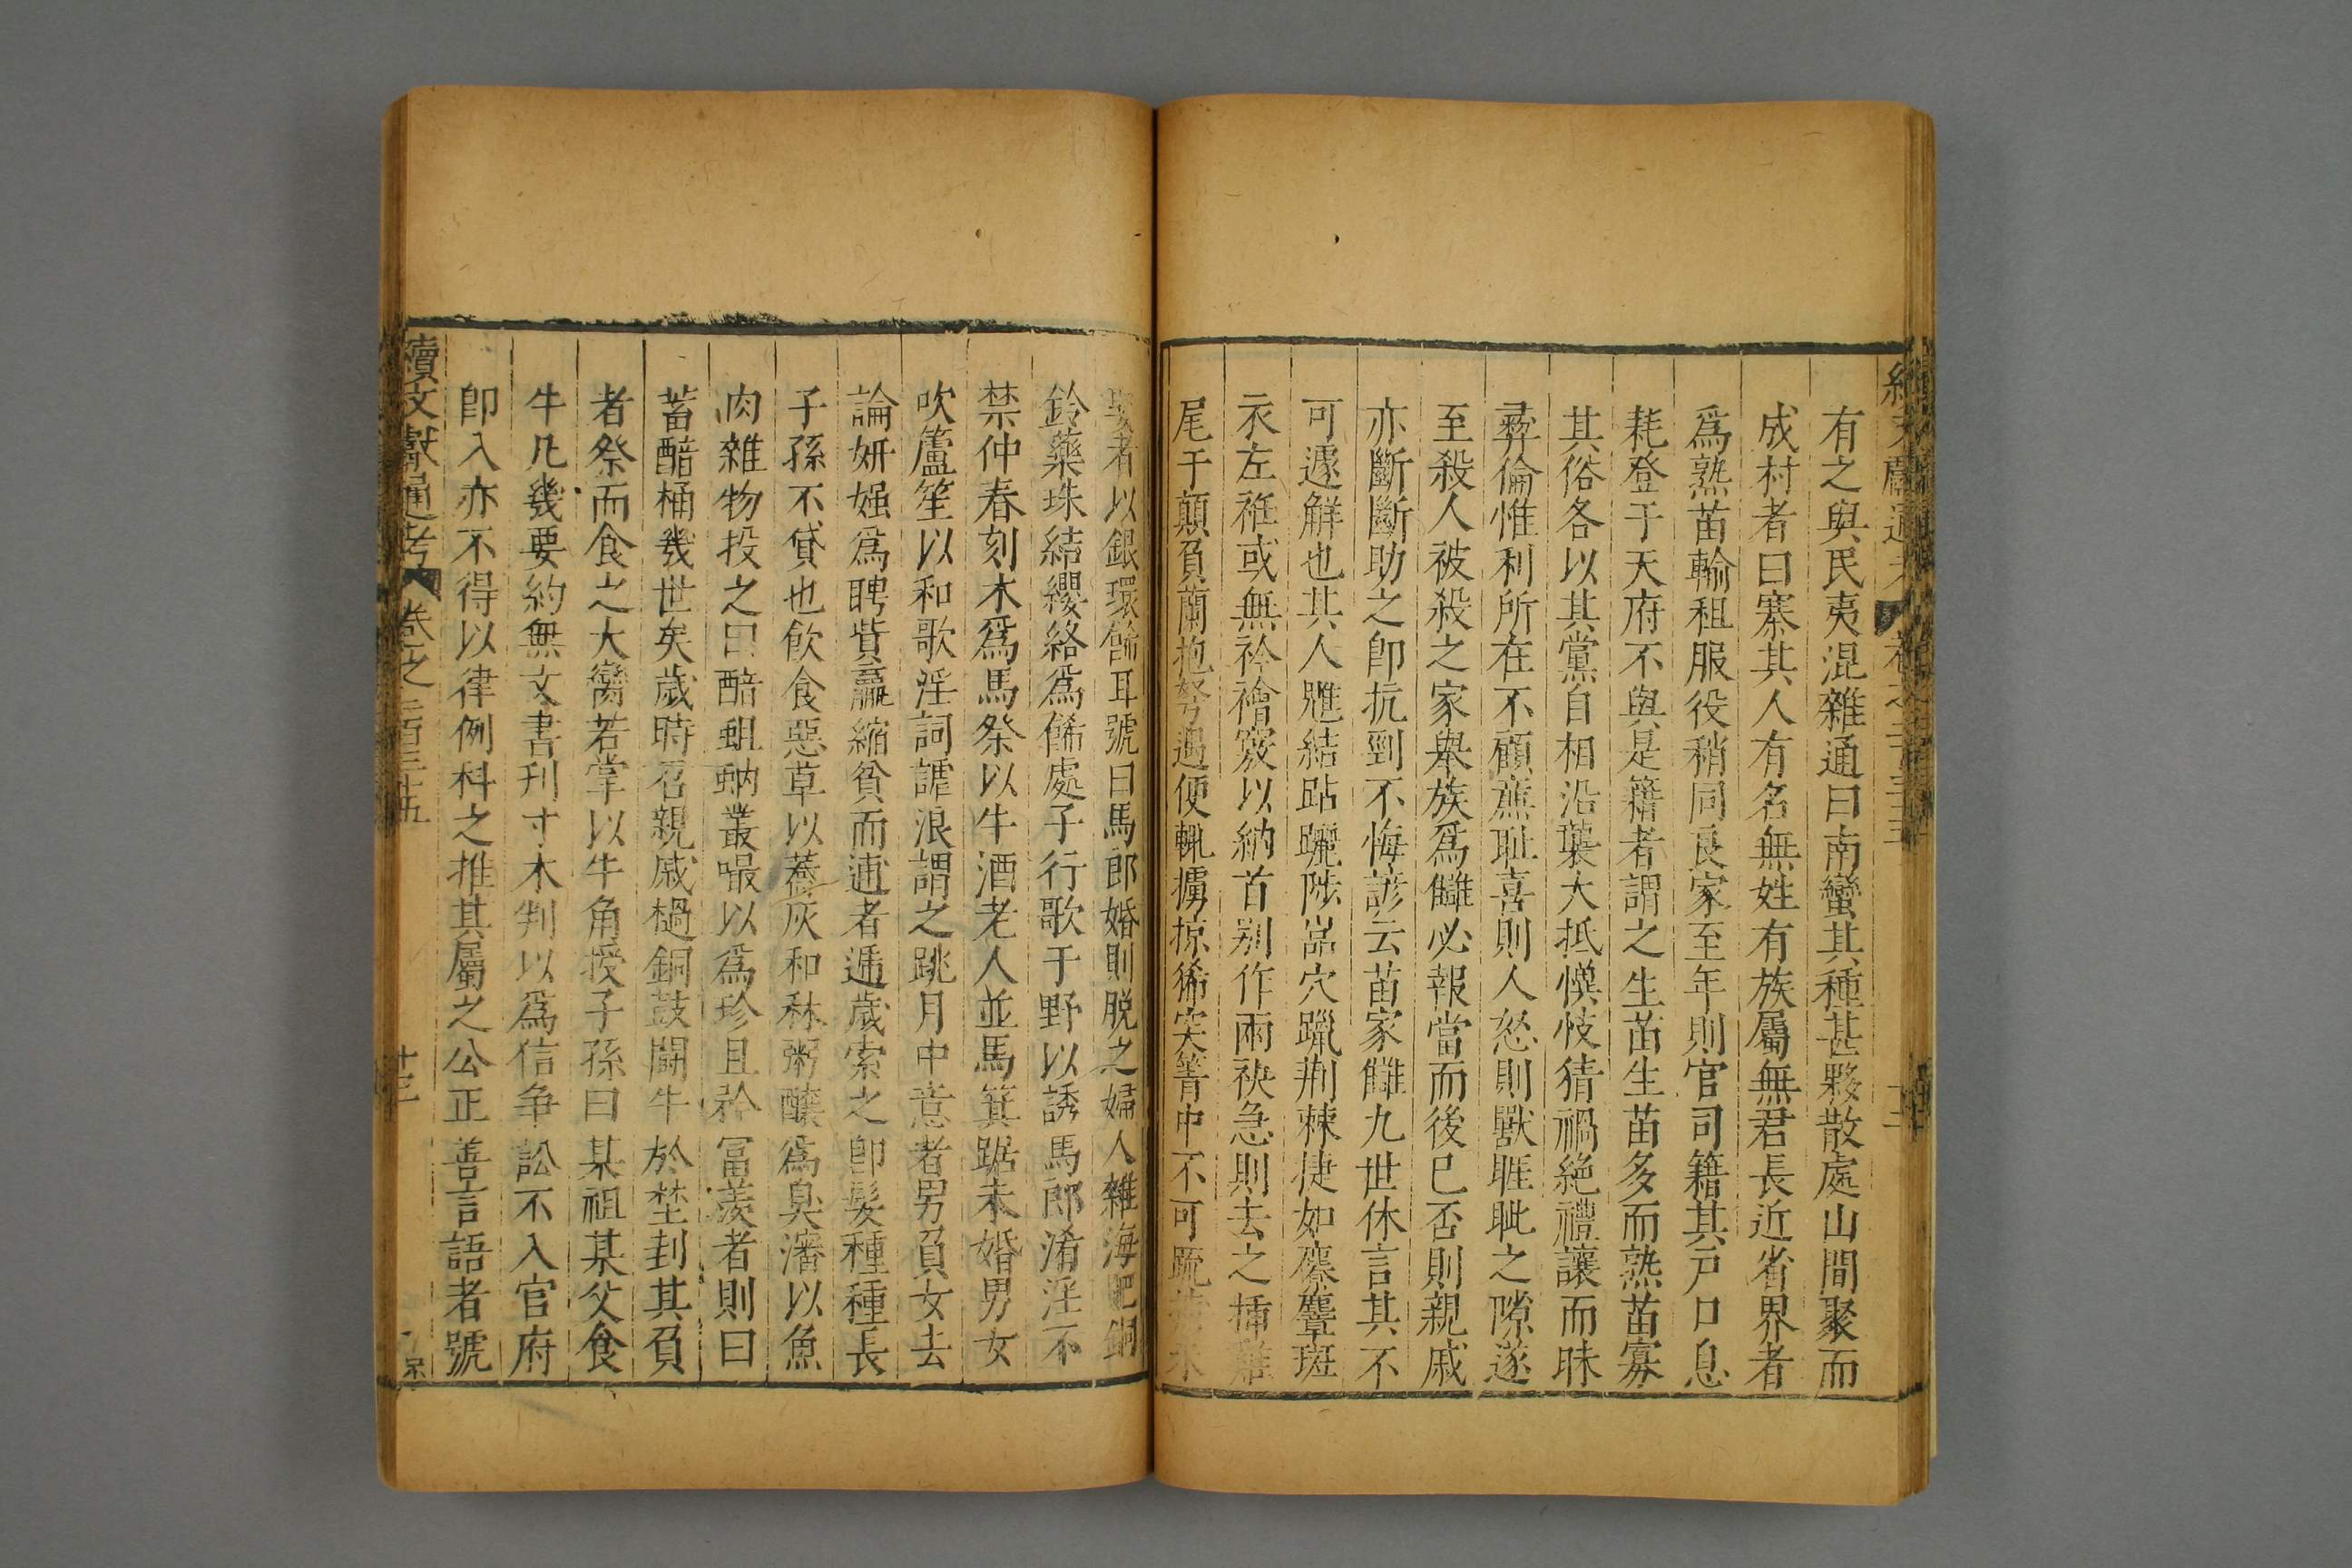 有之與民夷混雜通曰南蠻其種甚夥散處山間聚而
成村者曰寨其人有名無姓有族屬無君長近省界者
爲熟苗輸租服役稍同良家至年則官司籍其戶口息
耗登于天府不與是籍者謂之生苗生苗多而熟苗寡
其俗各以其黨自相沿襲大抵慔忮猜禍絕禮讓而昧
彛倫惟利所在不顧廉耻喜則人怒則獸睚眦之隙遂
至殺人被殺之家舉族爲讎必報當而後已否則親戚
亦斷斷助之卽抗剄不悔諺云苗家讎九世休言其不
可遽解也其人魋結跕躧陟嵓穴躐荆棘捷如麋麞斑
衣左袵或無衿襘竅以納首别作兩袂急則去之揷雞
尾于顛負蘭抱弩遇便輒擄掠狶突箐中不可䟽
娶者以銀環餙耳號曰馬郎婚則脫之婦人雜海肥銅
鈴藥珠結纓絡爲餙處子行歌于野以誘馬郎淆淫不
禁仲春刻木爲馬祭以牛酒老人並馬箕踞未婚男女
吹蘆笙以和歌淫詞謔浪謂之跳月中意者男負女去
論妍媸爲聘貲贏縮貧而逋者遞歲索之卽髮種種長
子孫不貸也飲食惡草以蕎灰和秫粥釀爲臭瀋以魚
肉雜物投之曰醅蛆蚋叢嘬以爲珍且矜冨羨者則曰
蓄醅桶幾世矣歲時召親戚檛銅鼓鬪牛於埜刲其負
者祭而食之大臠若掌以牛角授子孫曰某祖某父食
牛凡幾要約無文書刋寸木判以爲信争訟不入官府
卽入亦不得以律例科之推其屬之公正善言語者號
續文獻通考 卷之二百三十五 十三